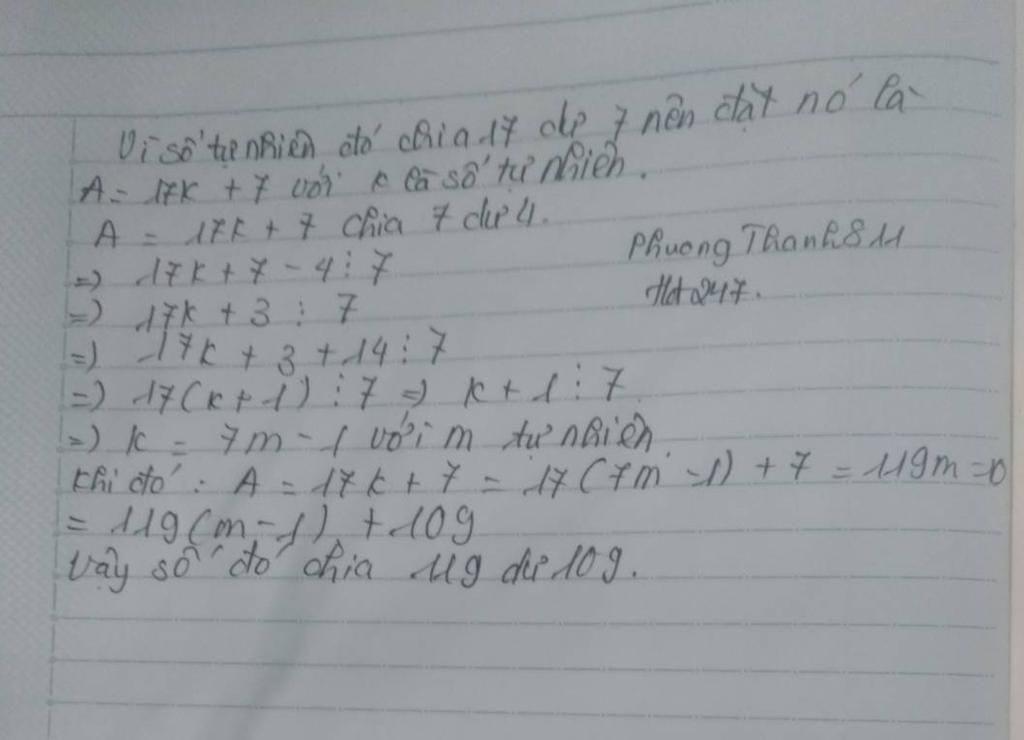 Vì số tự nhiên đó chia 17 dư 7 nên đặt nó là
A = 17k + 7 với k là số tự nhiên.
A = 17k + 7 chia 7 dư 4.
=) 17k + 7 - 4 ⋮ 7
=) 17k + 3 ⋮ 7
=) 17k + 3 + 14 ⋮ 7
=) 17(k+1) ⋮ 7 =) k + 1 ⋮ 7
=) k = 7m - 1 với m tự nhiên
Khi đó : A = 17k + 7 = 17(7m - 1) + 7 = 119m = 0
= 119(m-1) + 109
Vậy số đó chia 119 dư 109.
Phuong Thanh 811
Hd247.